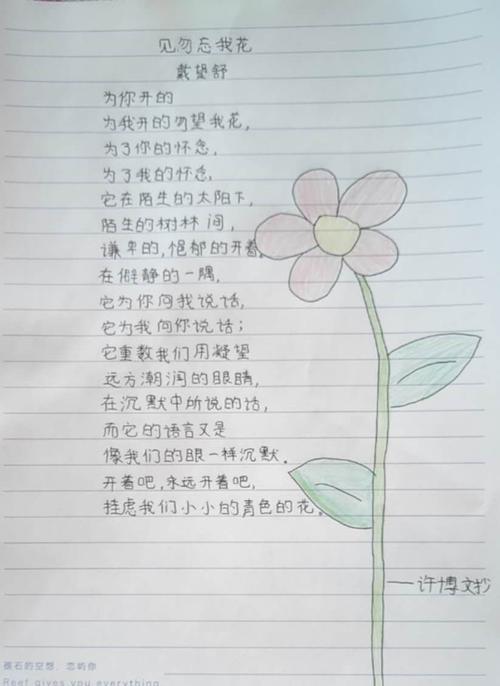 见勿忘我花
戴望舒
为你开的
为我开的勿望我花，
为了你的怀念，
为了我的怀念，
它在陌生的太阳下，
陌生的树林间，
谦卑的，悒郁的开着。
在僻静的一隅，
它为你向我说话，
它为我向你说话；
它重数我们用凝望
远方潮润的眼睛，
在沉默中所说的话，
而它的语言又是
像我们的眼一样沉默．
开着吧，永远开着吧，
挂虑我们小小的青色的花。
——许博文抄
孩石的空想，恋屿你
Reef gives you everything